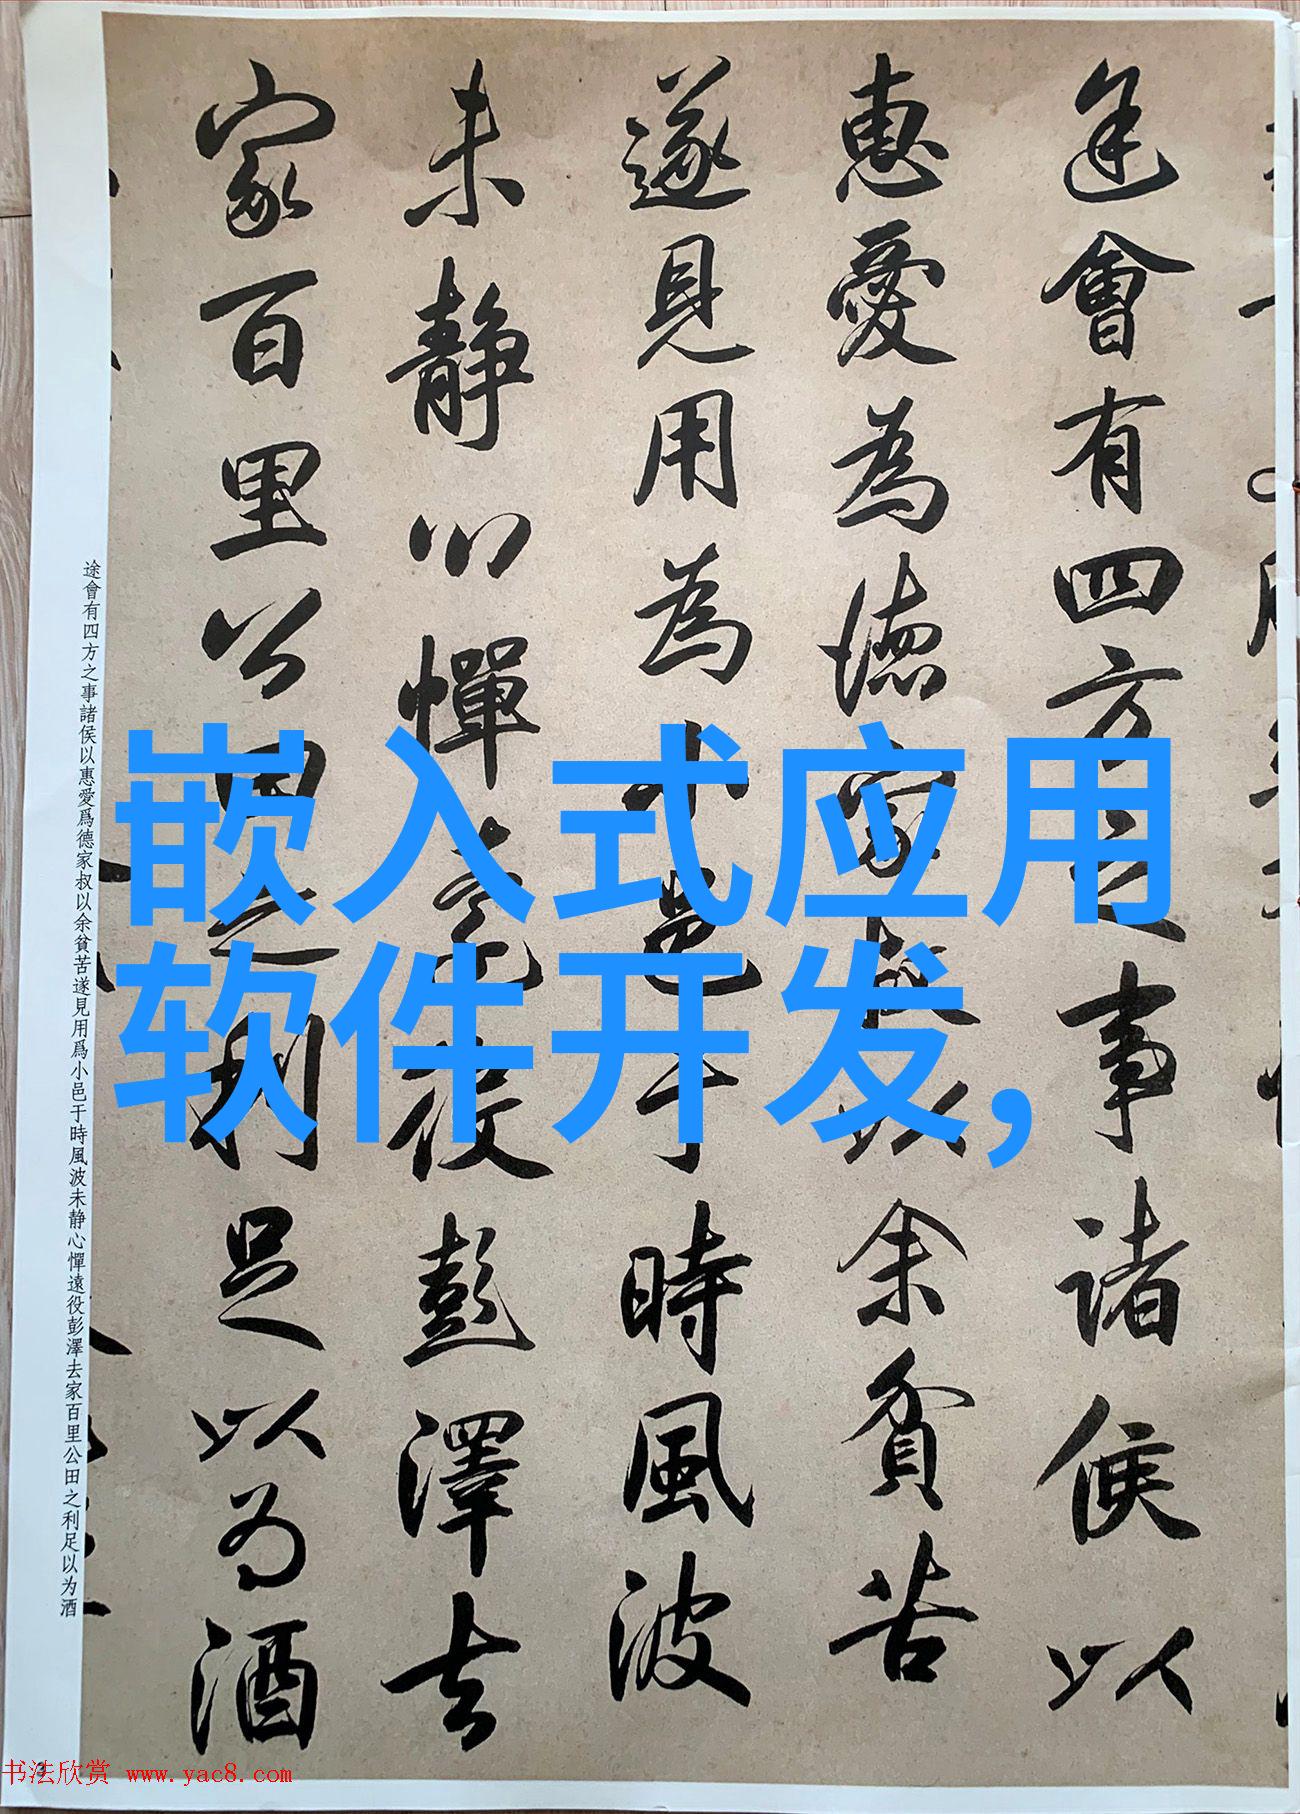 途會有四方之事諸侯以
惠愛為德家叔以余貧苦
遂見用為小邑于時風波
未靜心憚遠役彭澤去
家百里公田之利足以為酒
途會有四方之事諸侯以惠愛爲德家叔以余貧苦遂見用爲小邑于時風波未静心憚遠役彭澤去家百里公田之利足以为酒
嵌入式应用
软件开发,
书法欣赏 www.yac8.com